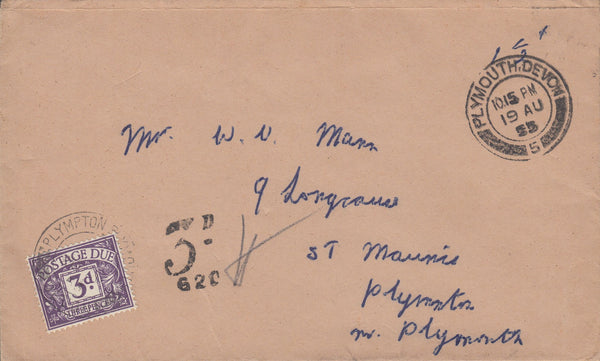 1½
PLYMOUTH, DEVON
10.15 PM
19 AU
55
5
Mr. W. V. Mann
9 Longcause
ST Maurice
Plympton
nr. Plymouth
PLYMPTON
POSTAGE DUE
3d
THREE PENCE
3D
G20